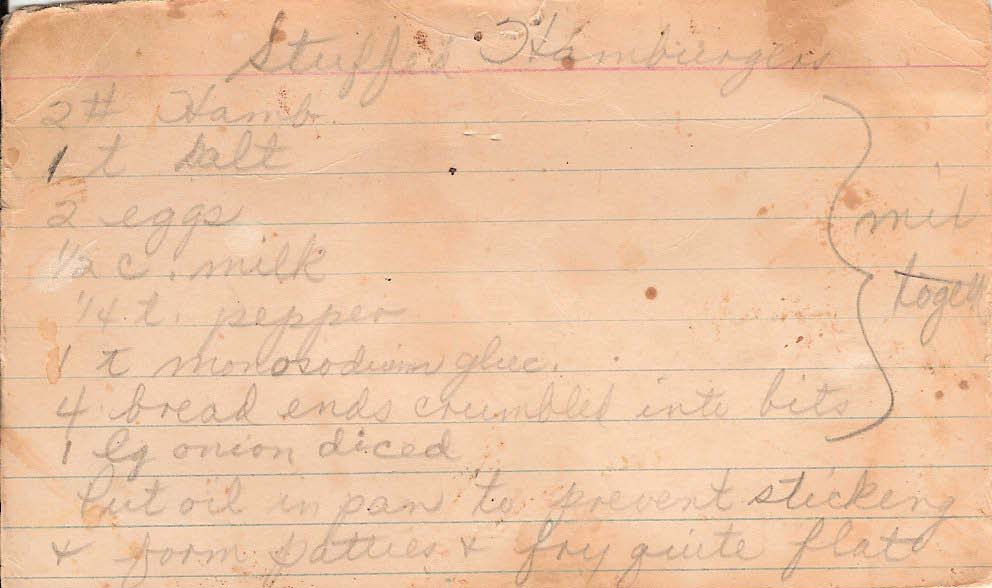 Stuffed Hamburgers
2# Hamb.
1 t salt
2 eggs
1/2 c. milk
1/4 t. pepper
1 t monosodium gluc.
4 bread ends crumbled into bits
mix
togeth
1 lg onion diced
Put oil in pan to prevent sticking
+ form patties + fry quite flat